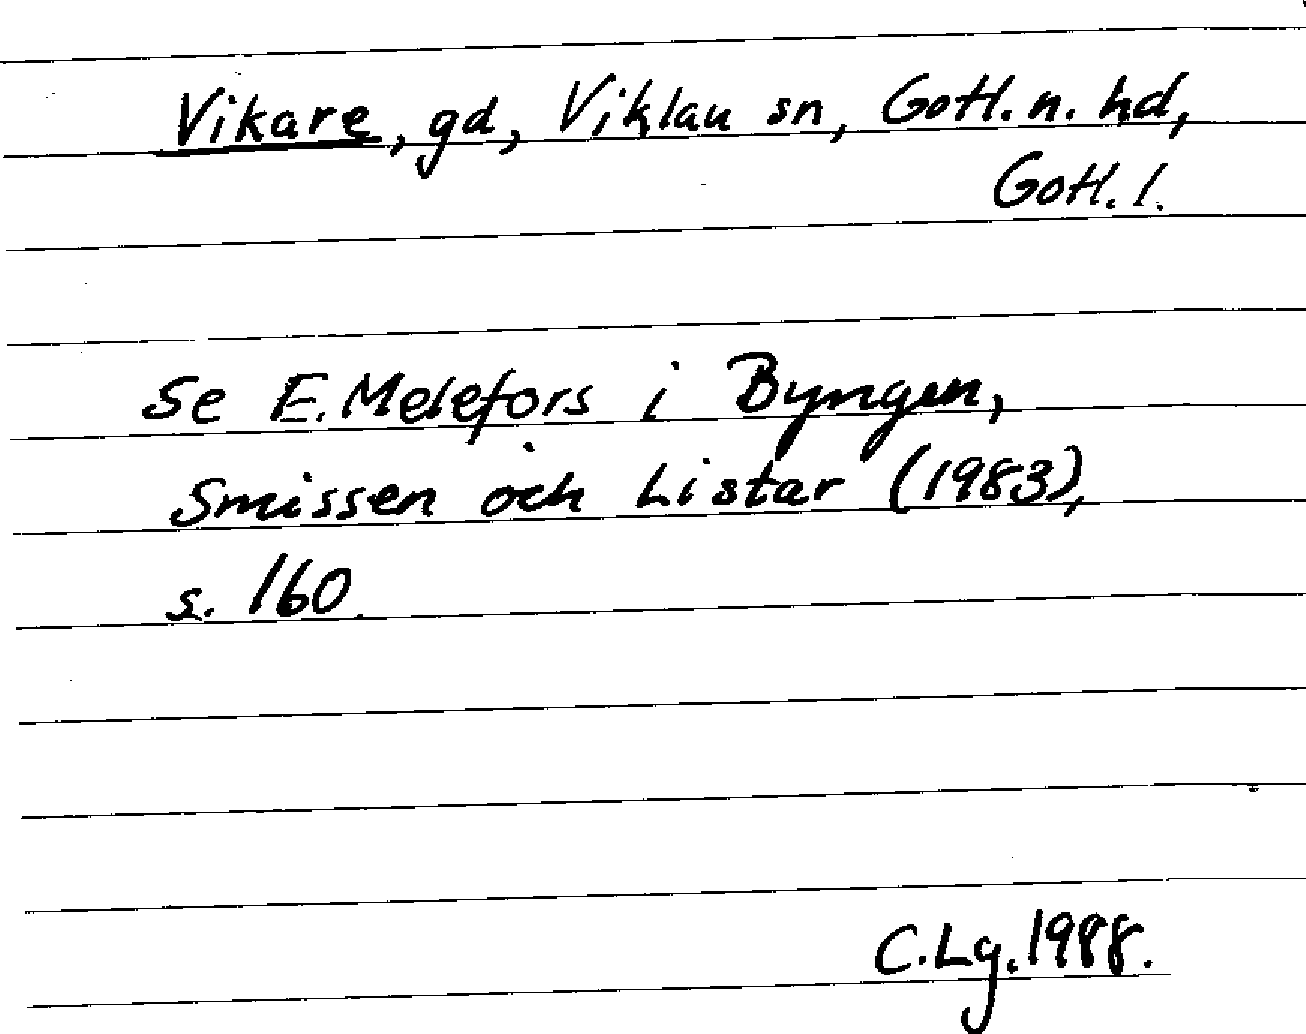 Vikare, gd, Viklau sn, Gotl. n. hd,
Gotl. l.
Se E. Melefors i Byngen,
Smissen och Listar (1983),
s. 160.
C.Lg. 1988.